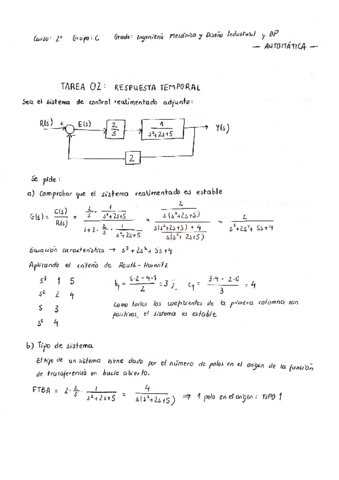 Curso: 2º Grupo: C Grado: Ingeniería Mecánica y Diseño Industrial y DP
— AUTOMÁTICA —
TAREA 02: RESPUESTA TEMPORAL
Sea el sistema de control realimentado adjunto:
R(s) + E(s) 2/s 1/(s²+2s+5) Y(s)
2
Se pide:
a) Comprobar que el sistema realimentado es estable
G(s) = C(s)/R(s) = (2/s · 1/(s²+2s+5))/(1+2·2/s·1/(s²+2s+5)) = (2/(s(s²+2s+5)))/((s(s²+2s+5)+4)/(s(s²+2s+5))) = 2/(s³+2s²+5s+4)
Ecuación característica → s³+2s²+5s+4
Aplicando el criterio de Routh-Hurwitz
s³ 1 5
s² 2 4
s 3
s⁰ 4
b₁ = (5·2-4·1)/2 = 3; c₁ = (3·4-2·0)/3 = 4
Como todos los coeficientes de la primera columna son
positivos, el sistema es estable
b) Tipo de sistema
El tipo de un sistema viene dado por el número de polos en el origen de la función
de transferencia en bucle abierto.
FTBA = 2·2/s · 1/(s²+2s+5) = 4/(s(s²+2s+5)) ⇒ 1 polo en el origen: TIPO 1